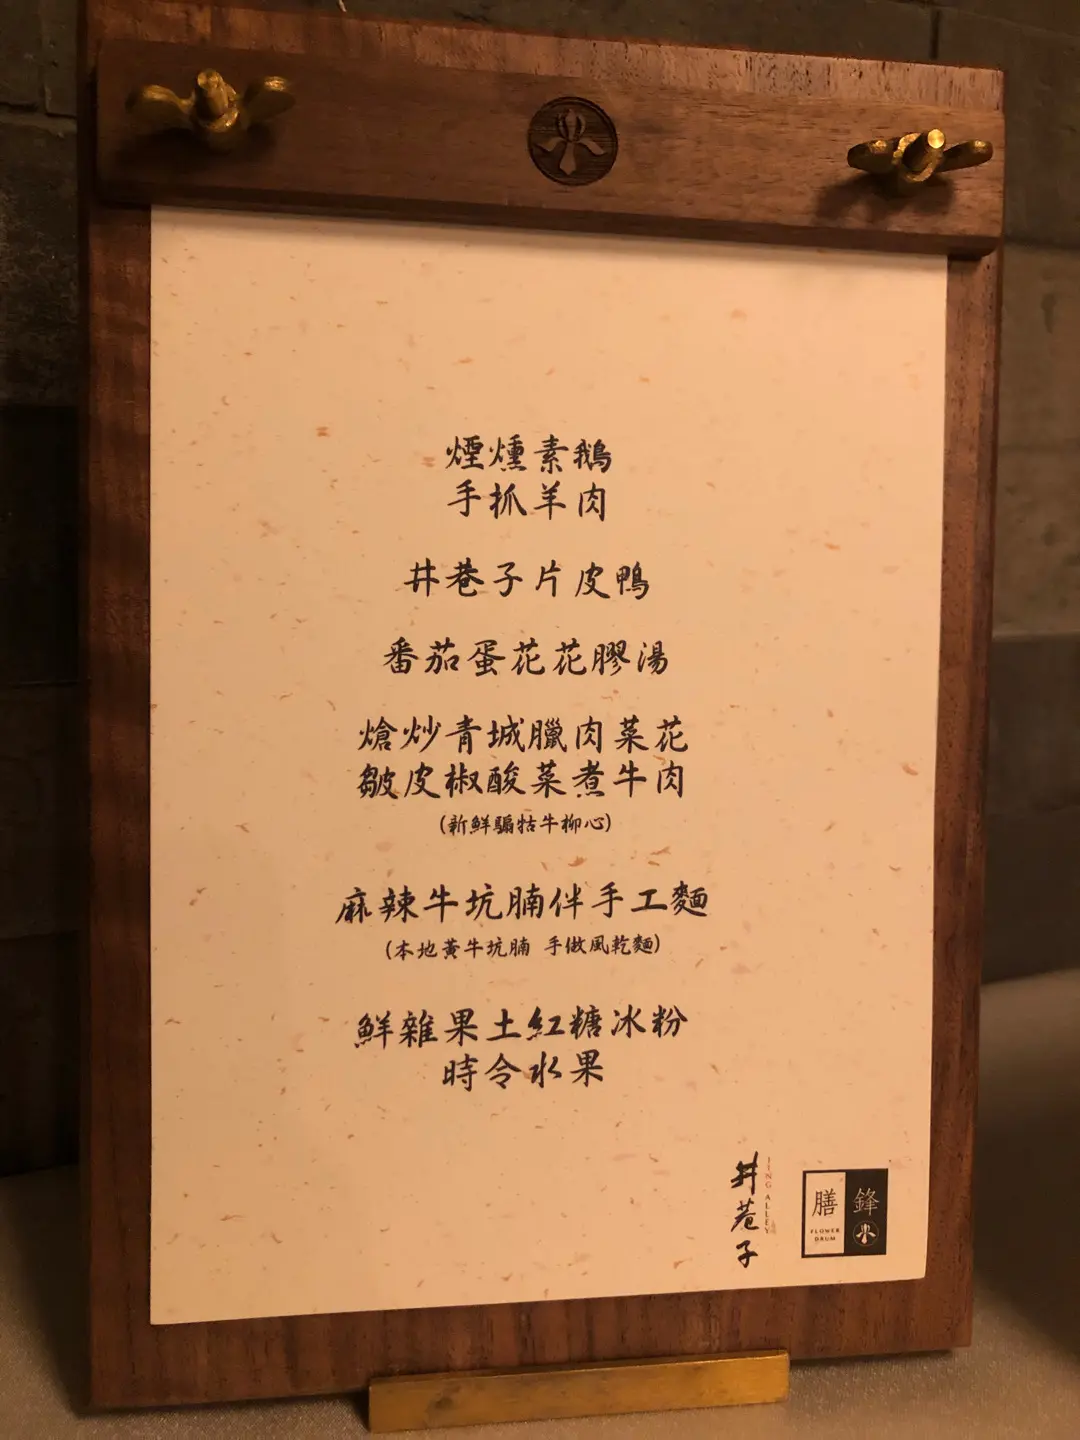 煙燻素鵝
手抓羊肉
井巷子片皮鴨
番茄蛋花花膠湯
熗炒青城臘肉菜花
皺皮椒酸菜煮牛肉
(新鮮騸牯牛柳心)
麻辣牛坑腩伴手工麵
(本地黃牛坑腩 手做風乾麵)
鮮雜果土紅糖冰粉
時令水果
井巷子
JING ALLEY
膳鋒
FLOWER
DRUM